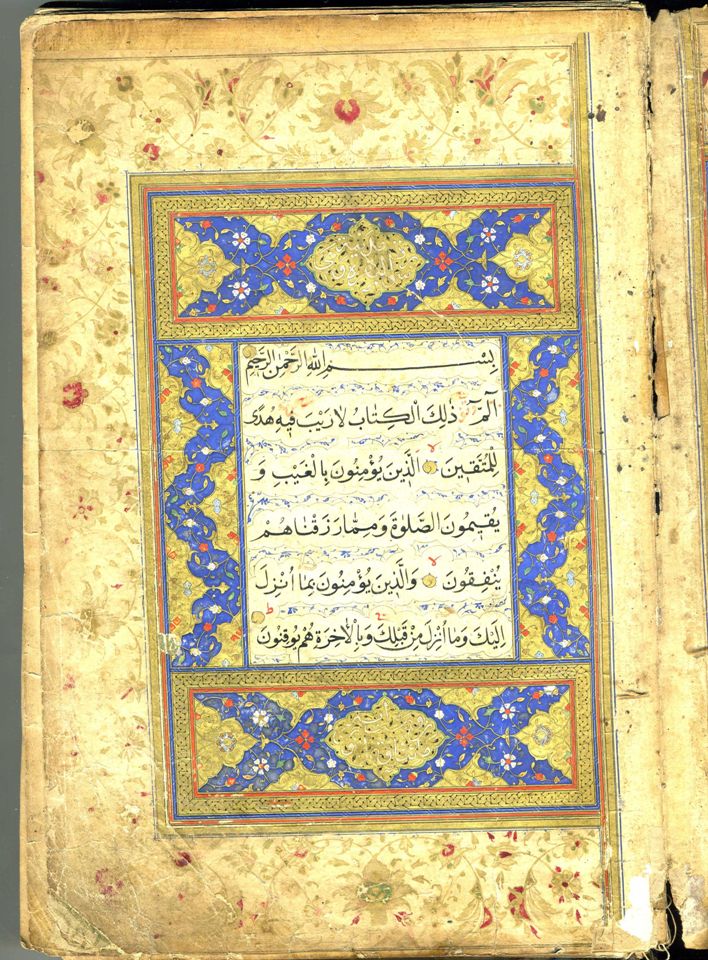 بِسْمِ اللهِ الرَّحْمٰنِ الرَّحِيمِ
الٓمٓ ذٰلِكَ الْكِتَابُ لَا رَيْبَ فِيهِ هُدًى
لِلْمُتَّقِينَ الَّذِينَ يُؤْمِنُونَ بِالْغَيْبِ وَ
يُقِيمُونَ الصَّلٰوةَ وَمِمَّا رَزَقْنَاهُمْ
يُنْفِقُونَ وَالَّذِينَ يُؤْمِنُونَ بِمَا اُنْزِلَ
اِلَيْكَ وَمَا اُنْزِلَ مِنْ قَبْلِكَ وَبِالْاٰخِرَةِ هُمْ يُوقِنُونَ